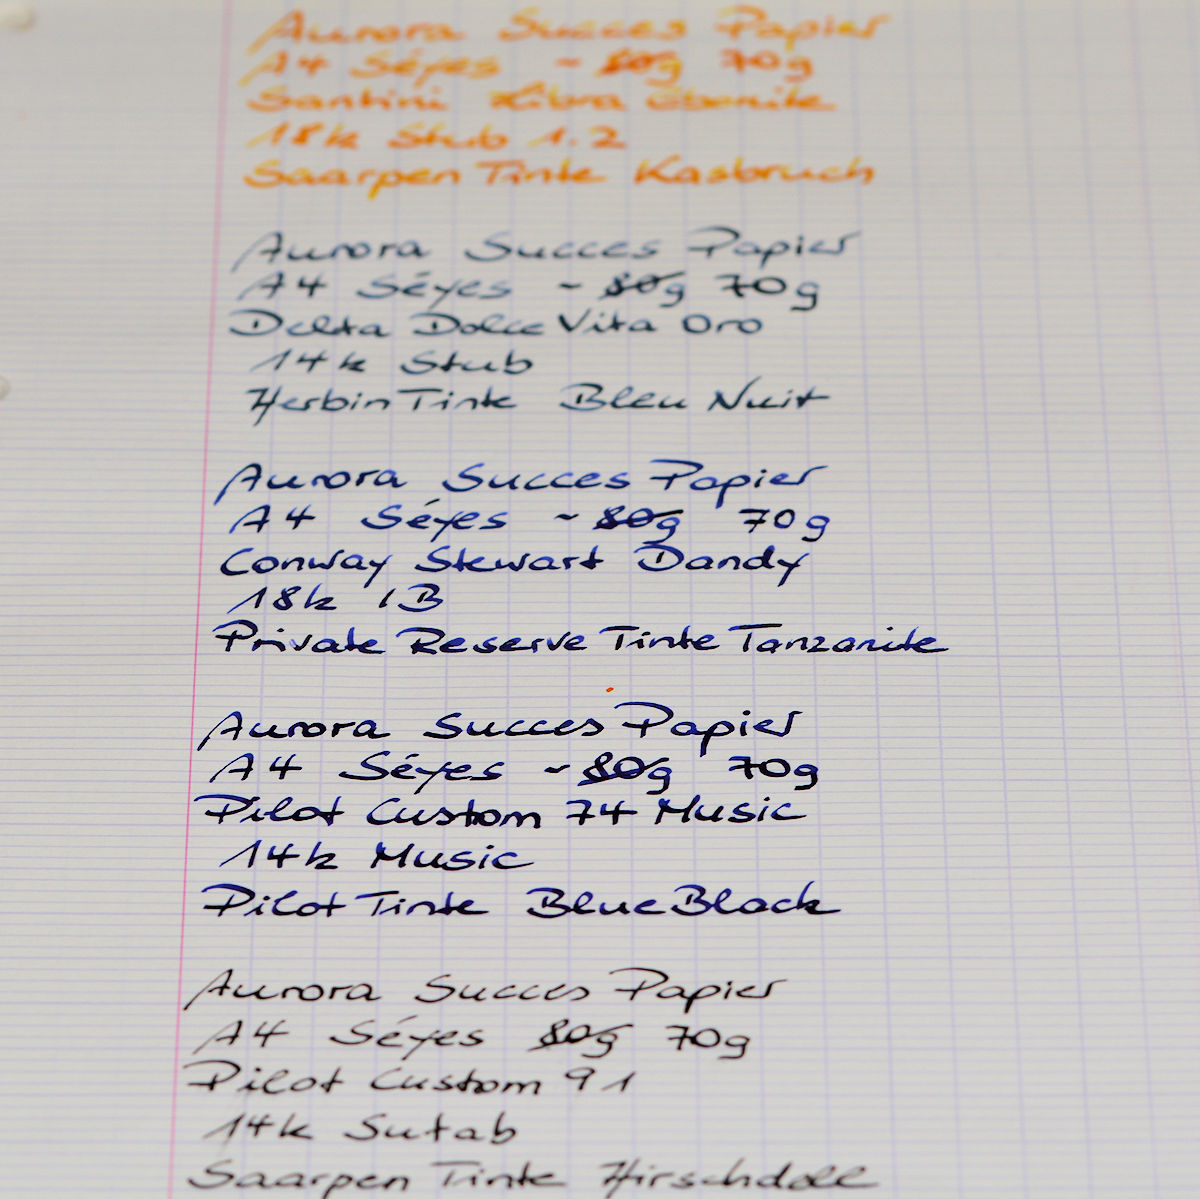 Aurora Succes Papier
A4 Séyes ~ 80g 70g
Santini Libra Ebonite
18k Stub 1.2
Saarpen Tinte Kasbruch
Aurora Succes Papier
A4 Séyes ~ 80g 70g
Delta Dolce Vita Oro
14k Stub
Herbin Tinte Bleu Nuit
Aurora Succes Papier
A4 Séyes ~ 80g 70g
Conway Stewart Dandy
18k IB
Private Reserve Tinte Tanzanite
Aurora Succes Papier
A4 Séyes ~ 80g 70g
Pilot Custom 74 Music
14k Music
Pilot Tinte Blue Black
Aurora Succes Papier
A4 Séyes 80g 70g
Pilot Custom 91
14k Sutab
Saarpen Tinte